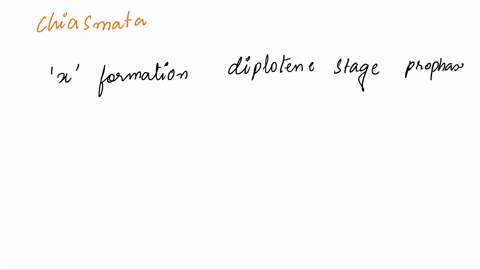 chiasmata
'x' formation diplotene stage prophas